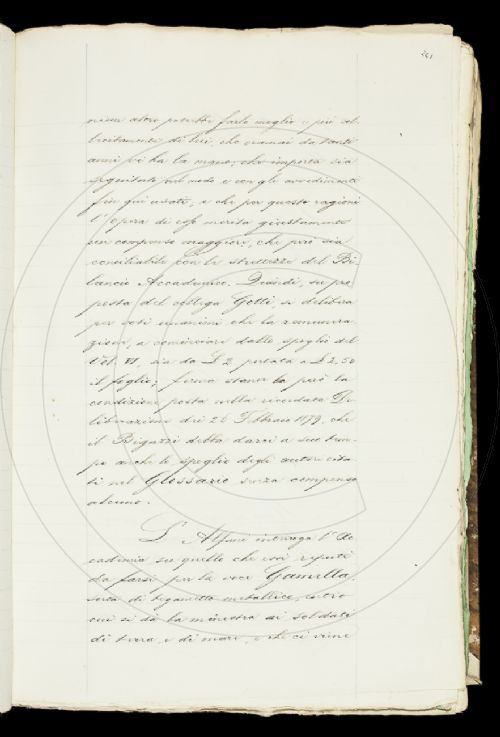 241
nessun altro potrebbe farlo meglio e più al-
trettamente di lui, che oramai da tanti
anni vi ha la mano; che importa sia
seguitato nel modo e con gli avvedimenti
fin qui usati, e che per queste ragioni
l'opera di esso merita giustamente
un compenso maggiore, che però sia
conciliabile con le strettezze del Bi-
lancio Accademico. Quindi, su pro-
posta del collega Gotti si delibera
per voti unanimi che la remunera-
zione, a cominciare dallo spoglio del
Vol. VI, sia da L 2 portata a L 2,50
il foglio; ferma stante però la
condizione posta nella ricordata De-
liberazione dei 26 Febbraio 1879, che
il Bigazzi debba darci a suo tem-
po anche lo spoglio degli autori cita-
ti nel Glossario senza compenso
alcuno.
L'Alfani interroga l'Ac-
cademia su quello che essi reputi
da farsi per la voce Gamella,
sorta di tegametto metallico, entro
cui si dà la minestra ai soldati
di terra, e di mare, e che ci viene